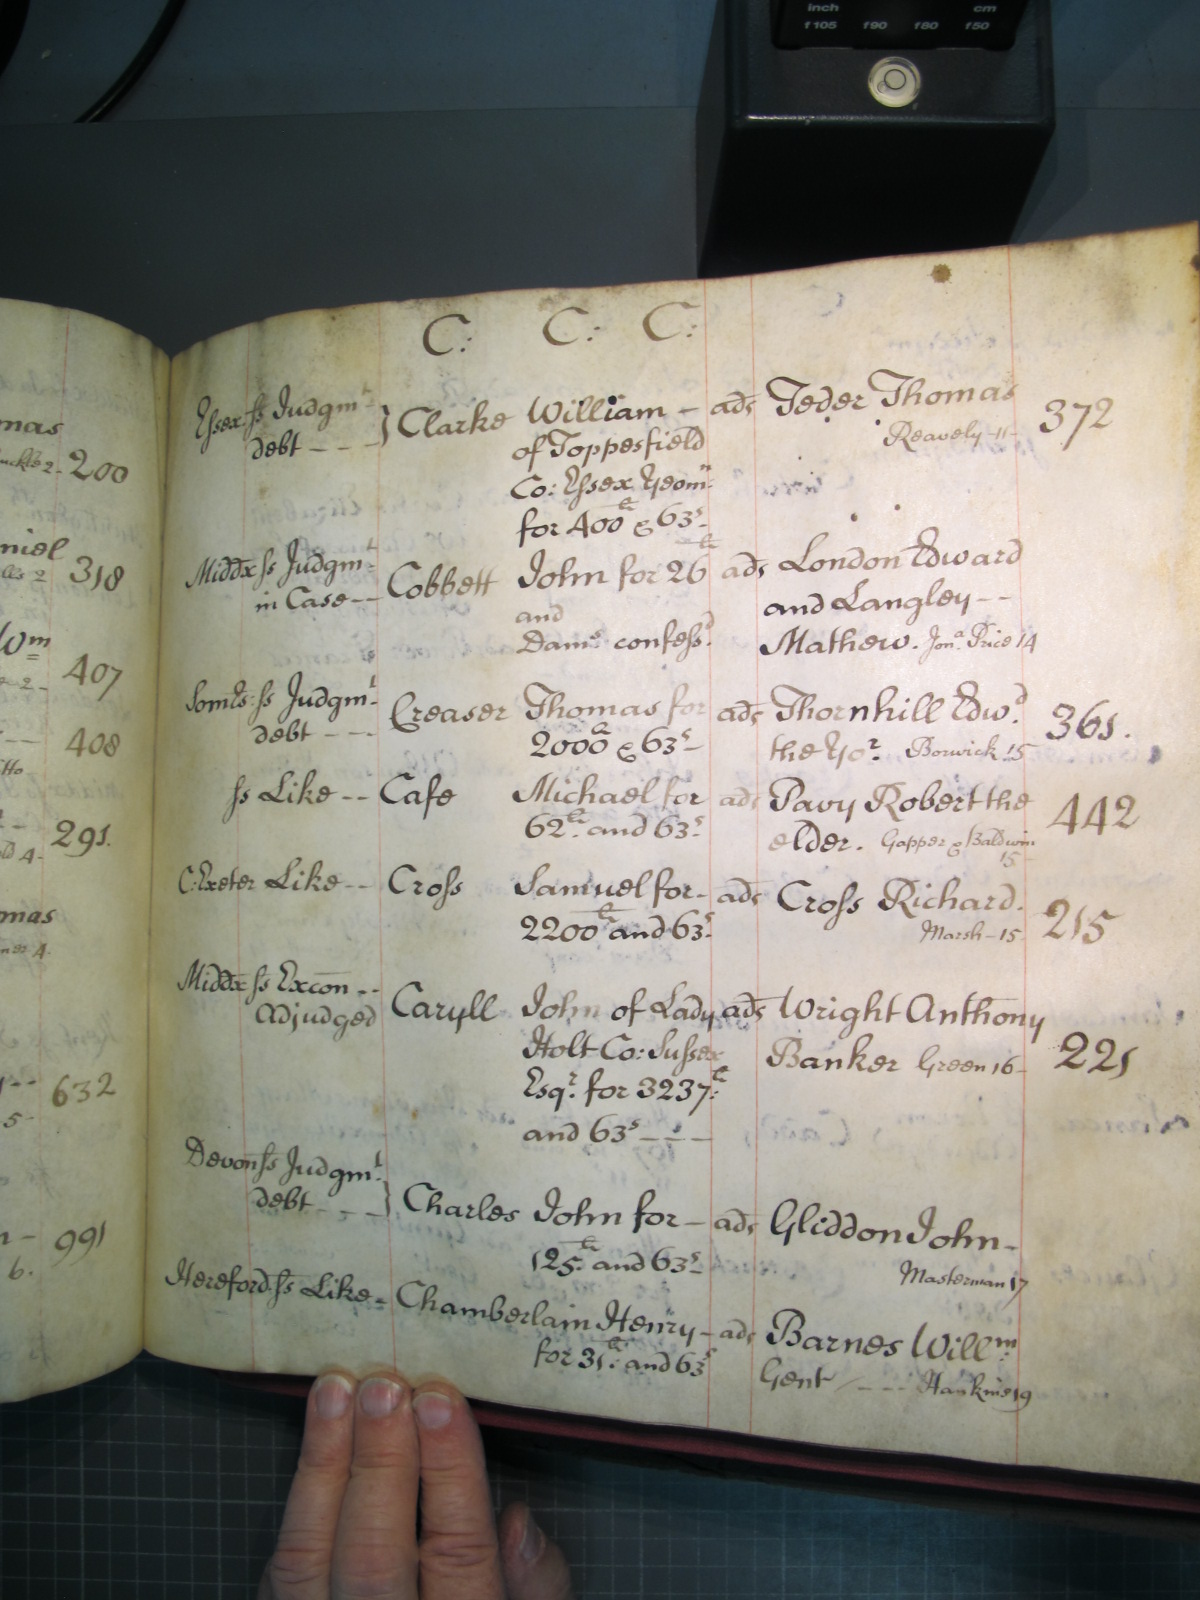 inch cm
f105 f90 f80 f50
mas
2 - 200
niel
2 318
Wm
407
408
291.
4
mas
4.
632
5
991
6.
C: C: C:
Essex ſs Judgmt Clarke William - ads Teder Thomas 372
debt - - - of Toppesfield Reavely 11
Co: Essex Yeomn
for 400li & 63s
Middx ſs Judgmt Cobbett John for 26li ads London Edward
in Case - - and and Langley - -
Dams confessd Mathew. Jona. Price 14
Somts: ſs Judgmt Creaser Thomas for ads Thornhill Edwd 361.
debt - - - 2000li & 63s - the Yor. Borwick 15
ſs Like - - Cafe Michael for ads Pavy Robert the 442
62li and 63s elder. Gapper & Baldwin
15
C: Exeter Like - - Croſs Samuel for - ads Croſs Richard. 215
2200li and 63s Marsh - 15
Middx ſs Excon - -
adjudged Caryll John of Lady ads Wright Anthony
Holt Co: Suſsex Banker Green 16 - 221
Esqr. for 3237li
and 63s - - -
Devon ſs Judgmt
debt - - - Charles John for - ads Gliddon John -
125li and 63s - Masterman 17
Hereford ſs Like - Chamberlain Henry - ads Barnes Willm
for 31li and 63s Gent - - - Hankins 19